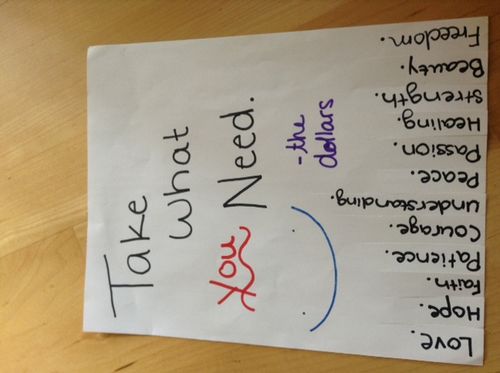 Take
What
You
Need.
-the
dollars
Love.
Hope.
Faith.
Patience.
Courage.
Understanding.
Peace.
Passion.
Healing.
Strength.
Beauty.
Freedom.